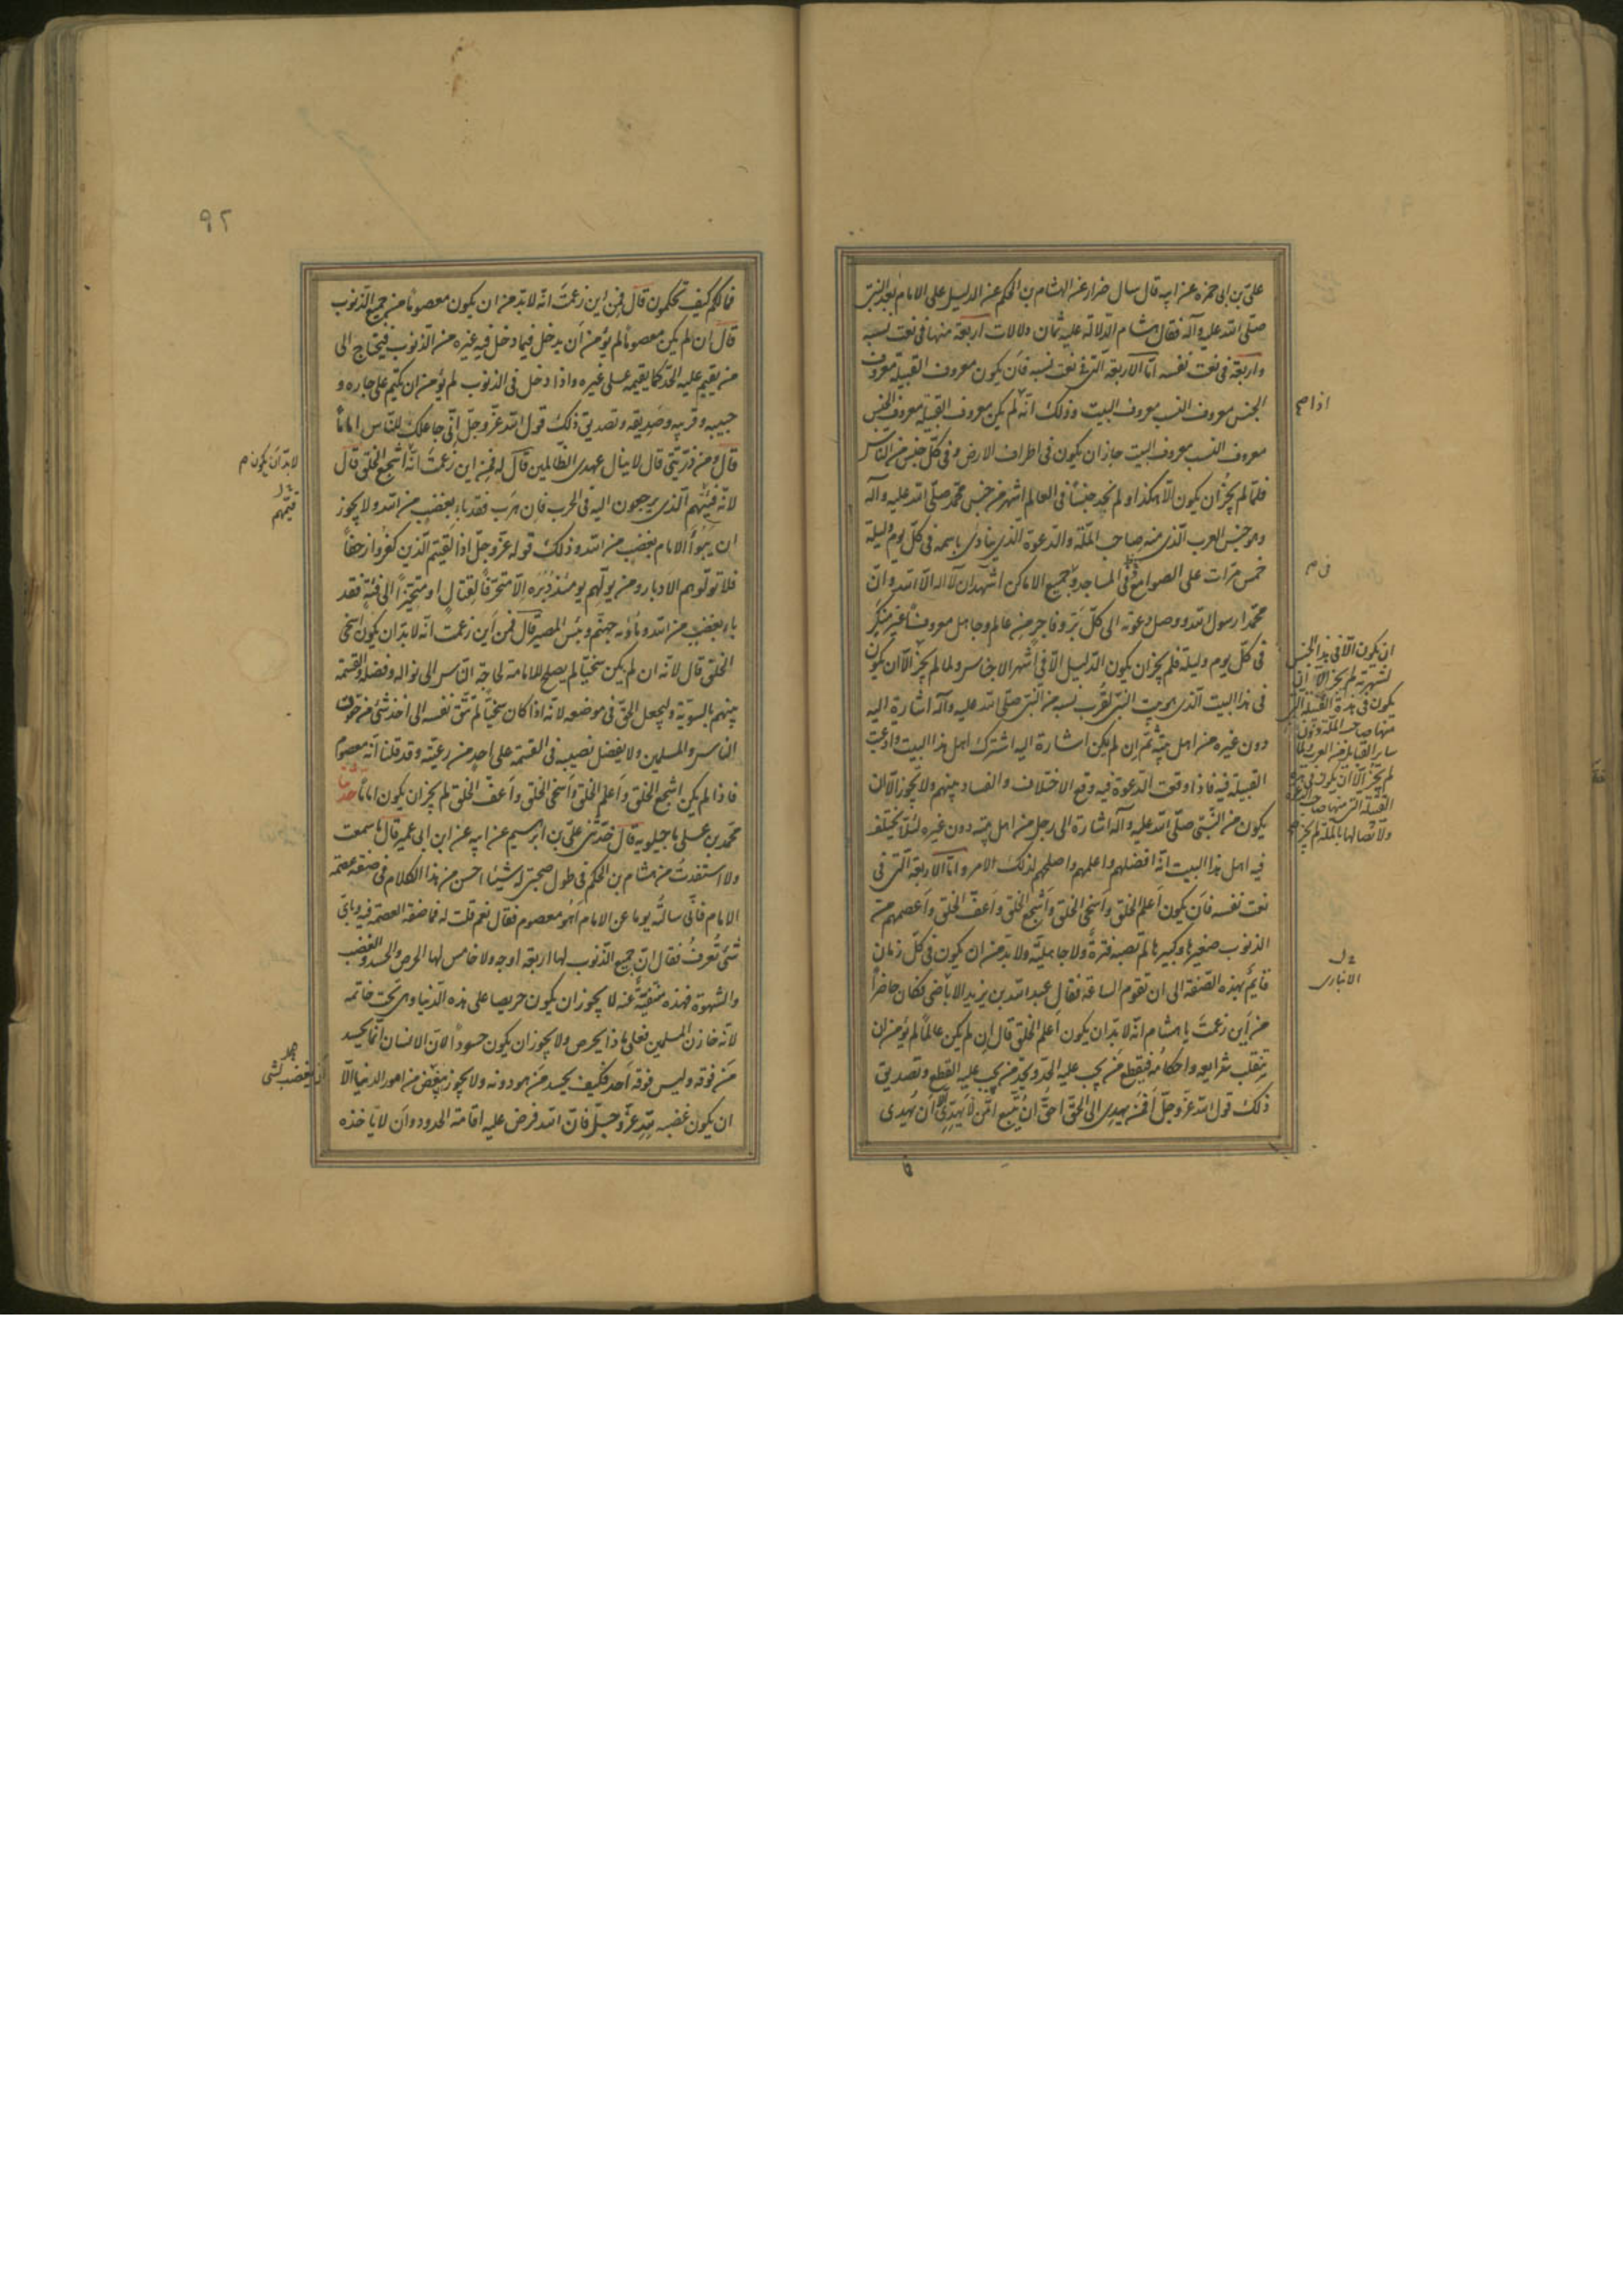 علی بن ابی حمزه عن ابیه قال سال ضرار عن الهشام بن الحکم عن الدلیل علی الامام بعد النبی
صلّی الله علیه وآله فقال هشام الدّلالة علیه ثمان دلالات اربعة منها فی نعت نسبه
واربعة فی نعت نفسه امّا الاربعة الّتی فی نعت نسبه فان یکون معروف القبیلة معروف
الجنس معروف النسب معروف البیت وذلک انّه لم یکن معروف القبیلة معروف الجنس
معروف النسب معروف البیت جاز ان یکون فی اطراف الارض وفی کلّ جنس من النّاس
فلمّا لم یجز ان یکون الّا هکذا ولم نجد جنسًا فی العالم اشهر من جنس محمّد صلّی الله علیه وآله
وهو جنس العرب الّذی منه صاحب الملّة والدعوة الّذی ینادی باسمه فی کلّ یوم ولیلة
خمس مرّات علی الصوامع فی المساجد فی جمیع الاماکن اشهد ان لا اله الّا الله وانّ
محمّدا رسول الله ووصل دعوته الی کلّ برّ وفاجر من عالم وجاهل معروف غیر منکر
فی کلّ یوم ولیلة فلم یجز ان یکون الدّلیل الّا فی اشهر الاجناس ولما لم یجز الّا ان یکون
فی هذا البیت الّذی هو بیت النبی لقرب نسبه من النّبی صلّی الله علیه وآله اشارة الیه
دون غیره من اهل بیته ثمّ ان لم یکن اشارة الیه اشترک اهل هذا البیت وادعیت
القبیلة فیه فاذا وقعت الدّعوة فیه وقع الاختلاف والفساد بینهم ولا یجوز الّا ان
یکون من النّبی صلّی الله علیه وآله اشارة الی رجل من اهل بیته دون غیره لئلّا یختلف
فیه اهل هذا البیت انّه افضلهم واعلمهم واصلحهم لذلک الامر وامّا الاربعة الّتی فی
نعت نفسه فان یکون اعلم الخلق واسخی الخلق واشجع الخلق واعفّ الخلق واعصمهم من
الذنوب صغیرها وکبیرها لم تصبه فترة ولا جاهلیّة ولا بدّ من ان یکون فی کلّ زمان
قائم بهذه الصّفة الی ان تقوم الساعة فقال عبد الله بن یزید الاباضی فکان حاضراً
من این زعمت یا هشام انّه لا بدّ ان یکون اعلم الخلق قال ان لم یکن عالماً لم یؤمن ان
ینقلب شرایعه واحکامه فیقطع من یجب علیه الحدّ ویحدّ من یجب علیه القطع وتصدیق
ذلک قول الله عزّ وجلّ افمن یهدی الی الحقّ احقّ ان یتّبع امّن لا یهدّی الّا ان یهدی
اذا صح
ان یکون الّا فی هذا الجنس
لشهرته لم یجز الّا ان
یکون فی هذه القبیلة الّتی
منها صاحب الملّة دون
سایر القبایل من العرب ولمّا
لم یجز الّا ان یکون فی هذه
القبیلة الّتی منها صاحب الدعوة
ولاتّصالها بالملّة لم یجز صح
خ ل
الانباری
۹۲
فما لکم کیف تحکمون قال فمن این زعمت انّه لا بدّ من ان یکون معصوماً من جمیع الذّنوب
قال ان لم یکن معصوماً لم یؤمن ان یدخل فیما دخل فیه غیره من الذّنوب فیحتاج الی
من یقیم علیه الحدّ کما یقیمه علی غیره واذا دخل فی الذنوب لم یؤمن ان یکتم علی جاره و
حبیبه وقریبه وصدیقه وتصدیق ذلک قول الله عزّ وجلّ انّی جاعلک للنّاس اماماً
قال ومن ذرّیّتی قال لا ینال عهدی الظّالمین قال له فمن این زعمت انّه اشجع الخلق قال
لانّه فئتهم الّذی یرجعون الیه فی الحرب فان هرب فقد باء بغضب من الله ولا یجوز
ان یبوء الامام بغضب من الله وذلک قوله عزّ وجلّ اذا لقیتم الّذین کفروا زحفاً
فلا تولّوهم الادبار ومن یولّهم یومئذ دبره الّا متحرّفاً لقتال او متحیّزاً الی فئة فقد
باء بغضب من الله ومأواه جهنّم وبئس المصیر قال فمن این زعمت انّه لا بدّ ان یکون اسخی
الخلق قال لانّه ان لم یکن سخیّا لم یصلح للامامة لحاجة النّاس الی نواله وفضله والقسمة
بینهم بالسّویّة ولیجعل الحقّ فی موضعه لانّه اذا کان سخیّاً لم تتق نفسه الی اخذ شئ من حقوق
الناس والمسلمین ولا یفضل نصیبه فی القسمة علی احد من رعیّته وقد قلنا انّه معصوم
فاذا لم یکن اشجع الخلق واعلم الخلق واسخی الخلق واعفّ الخلق لم یجز ان یکون اماماً حدثنا
محمّد بن علی ماجیلویه قال حدّثنی علیّ بن ابرهیم عن ابیه عن ابن ابی عمیر قال ما سمعت
ولا استفدت من هشام بن الحکم فی طول صحبتی له شیئا احسن من هذا الکلام فی صفة عصمة
الامام فانّی سالته یوما عن الامام اهو معصوم فقال نعم قلت له فما صفة العصمة فیه وبایّ
شئ تعرف فقال انّ جمیع الذّنوب لها اربعة اوجه ولا خامس لها الحرص والحسد والغضب
والشهوة فهذه منفیّة عنه لا یجوز ان یکون حریصا علی هذه الدّنیا وهی تحت خاتمه
لانّه خازن المسلمین فعلی ماذا یحرص ولا یجوز ان یکون حسوداً لانّ الانسان انّما یحسد
من فوقه ولیس فوقه احد فکیف یحسد من هو دونه ولا یجوز یغضب من امور الدنیا الّا
ان یکون غضبه لله عزّ وجلّ فانّ الله فرض علیه اقامة الحدود وان لا یأخذه
لا بدّ ان یکون م
خ ل
فیئهم
ان یغضب لشی